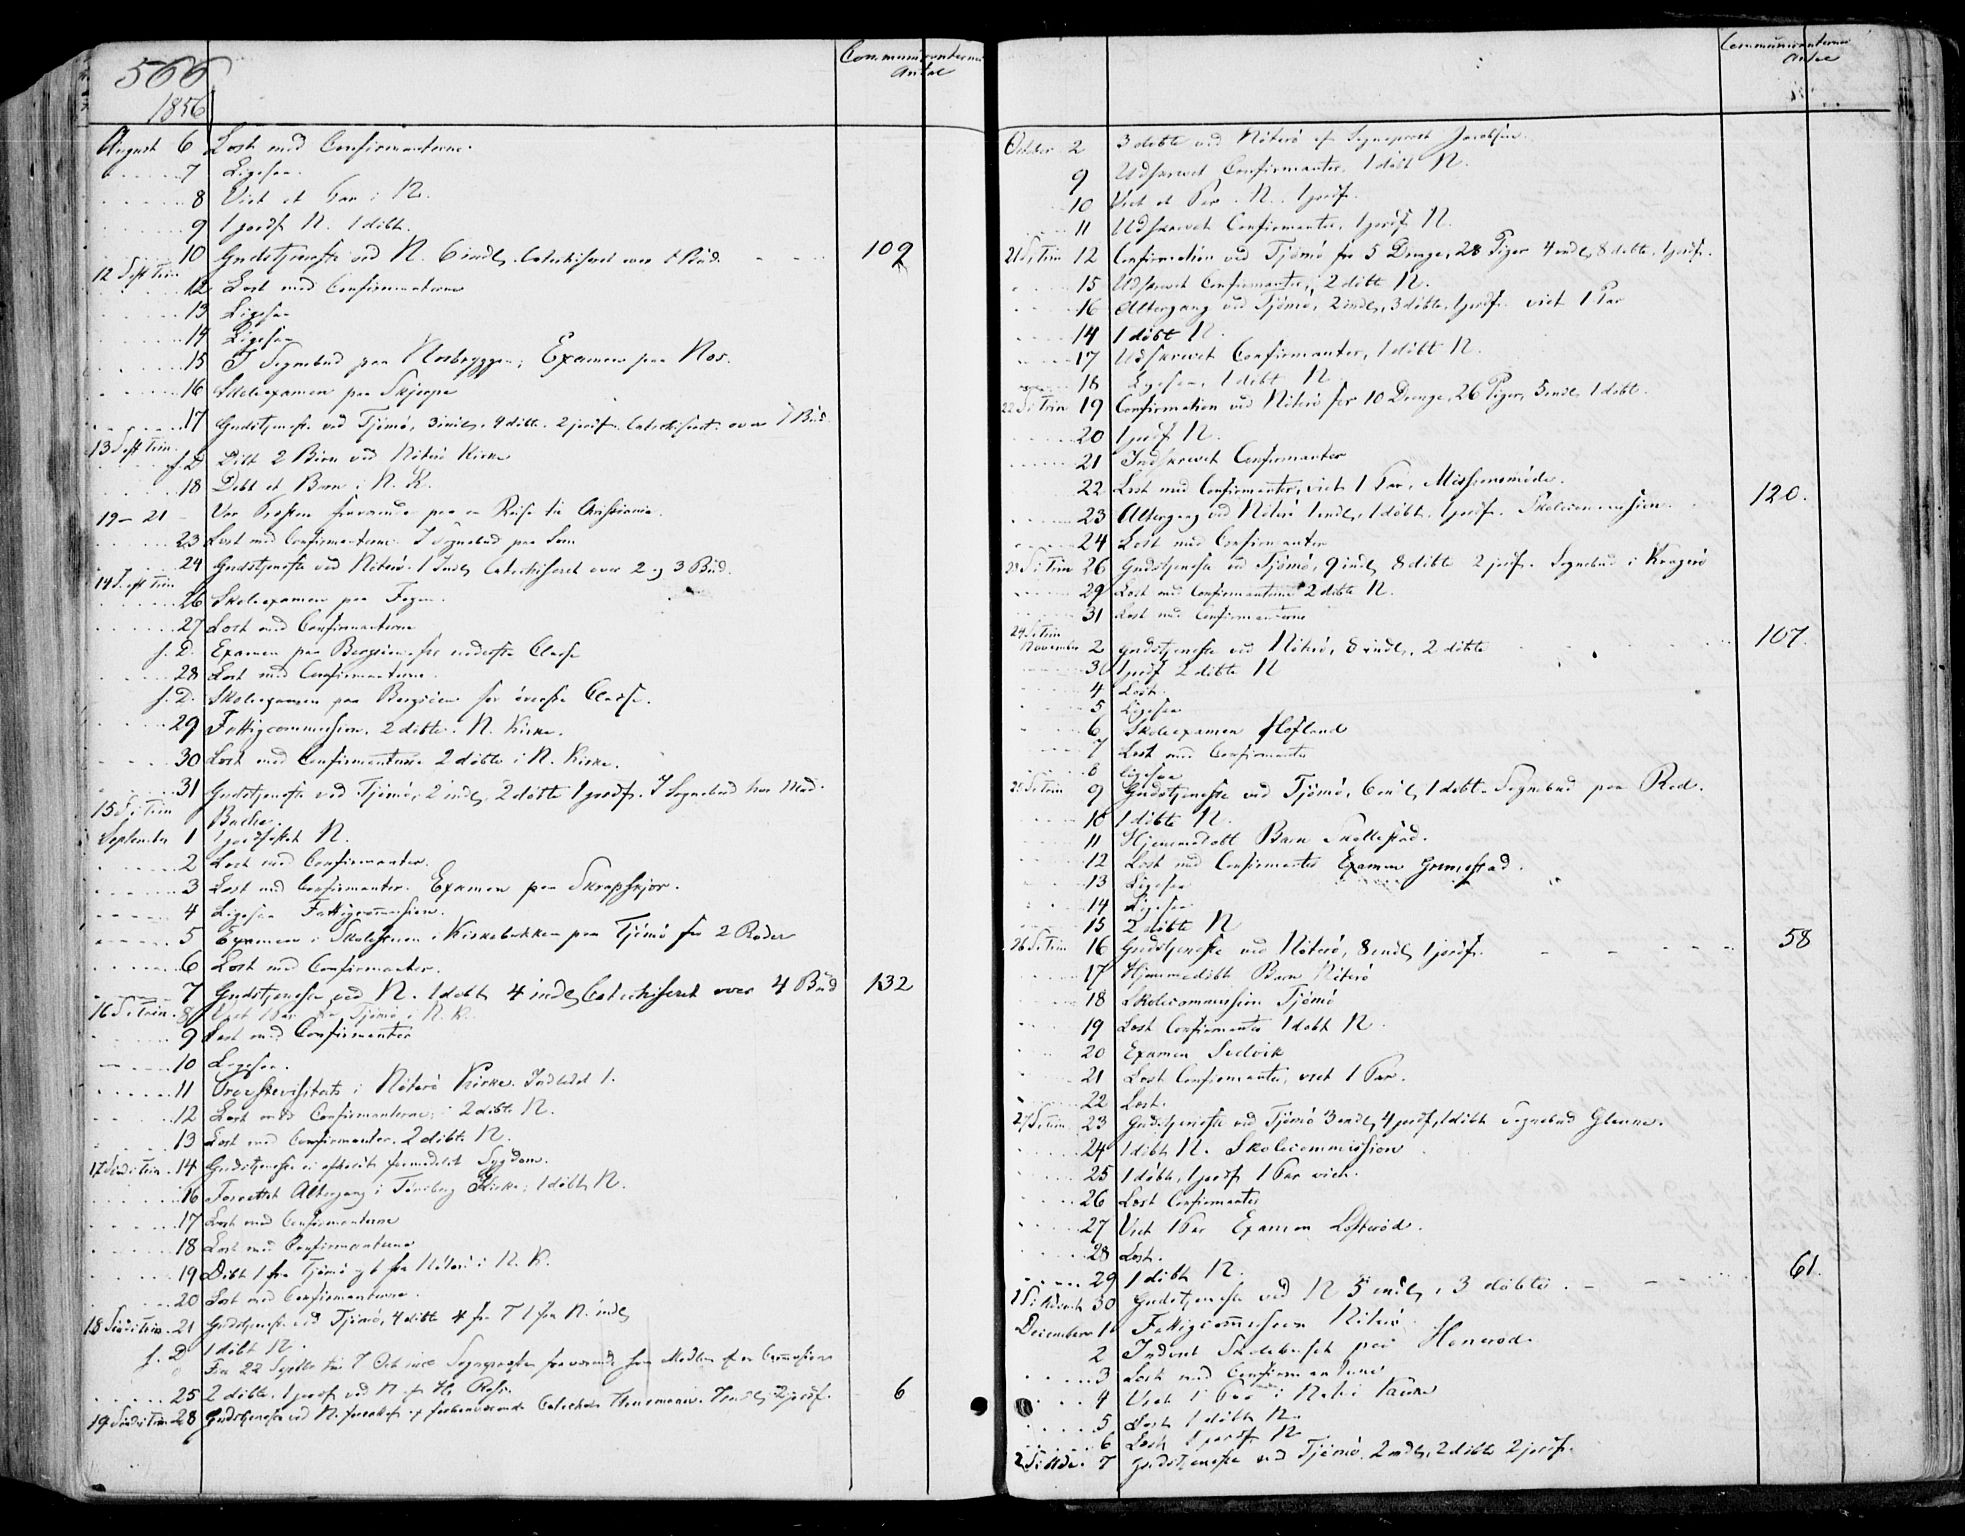 566
1856
Communicanternes
Antal
August 6 Læst med Confirmanterne.
7 Ligesaa.
8 Viet et Par i N.
9 1 jordf. N. 1 döbt.
10 Gudstjeneste ved N. 6 indl. Catechiseret over 1 Bud. 109
12 S. eft Trin.
12 Læst med Confirmanterne
13 Ligesaa
14 Ligesaa
15 I Sognebud paa Nesbryggen; Examen paa Nes.
16 Skoleexamen paa Skjerpe
17 Gudstjeneste ved Tjömö, 3 indl. 4 döbte. 2 jordf. Catechiseret over 1 Bud.
13 S. eft Trin.
s. D. Döbt 2 Börn ved Nöterö Kirke
18 Döbt et Barn i N. K.
19-21 Var Provsten fraværende paa en Reise til Christiania.
23 Læst med Confirmanterne. I Sognebud paa
24 Gudstjeneste ved Nöterö. 1 Indl. Catechiseret over 2 og 3 Bud.
14 S. eft Trin
26 Skoleexamen paa
27 Læst med Confirmanterne
s. D. Examen paa Bergsien for nederste Classe
28 Læst med Confirmanterne.
s. D. Skoleexamen paa Bergsien for överste Classe.
29 Fattigcommission. 2 döbte. N. Kirke.
30 Læst med Confirmanterne 2 döbte i N. Kirke.
31 Gudstjeneste ved Tjömö, 2 indl. 2 döbte 1 jordf. I Sognebud hos Mad.
15 S. e. Trin Bache.
September 1 1 jordfæstet N.
2 Læst med Confirmanter.
3 Læst med Confirmanter. Examen paa Skrapskjær.
4 Ligesaa Fattigcommission.
5 Examen i Skolestuen i Kirkebakken paa Tjömö for 2 Roder
6 Læst med Confirmanter.
7 Gudstjeneste ved N. 1 döbt, 4 indl. Catechiseret over 4 Bud 132
16 S. e. Trin. 8 Viet 1 Par fra Tjömö i N. K.
9 Læst med Confirmanter
10 Ligesaa.
11 Provstevisitats i Nöterö Kirke. Indledet 1.
12 Læst med Confirmanterne; 2 döbte N.
13 Læst med Confirmanter. 2 döbte N.
17 Sönd. e. Trin. 14 Gudstjeneste ei afholdt formedelst Sygdom.
16 Forrettet Altergang i Tönsberg Kirke; 1 döbt N.
17 Læst med Confirmanterne
18 Læst med Confirmanterne
19 Döbt 1 fra Tjömö og 6 fra Nöterö i N. K.
20 Læst med Confirmanterne.
18 Sönd. e. Trin. 21 Gudstjeneste ved Tjömö, 4 döbte 4 fra T 1 fra N. indl.
s. D 1 döbt N.
Fra 22 Septbr til 7 Oct incl. Sognepræsten fraværende som Medlem af en Commission
25 2 döbte. 1 jordf. ved N. af Hr
19 Sönd. e. Trin 28 Gudstjeneste ved N. forrettet af forhenværende Catechet 2 jordf. 6
Communicanternes
Antal
October 2 3 döbte ved Nöterö af Sognepræst Jacobsen.
9 Udskrevet Confirmanter, 1 döbt N.
10 Viet et Par. N. 1 jordf.
11 Udskrevet Confirmanter, 1 jordf. N.
21 S. e. Trin 12 Confirmation ved Tjömö for 5 Drenge, 28 Piger 4 indl. 8 döbte. 1 jordf.
15 Udskrevet Confirmanter, 2 döbte N.
16 Altergang ved Tjömö, 2 indl., 3 döbte, 1 jordf. viet 1 Par
14 1 döbt N.
17 Udskrevet Confirmanter, 1 döbt N.
18 Ligesaa, 1 döbt N
22 S. e. Trin 19 Confirmation ved Nöterö for 10 Drenge, 26 Piger, 5 indl. 1 döbt.
20 1 jordf. N.
21 Indskrevet Confirmanter
22 Læst med Confirmanter, viet 1 Par, Missionsmöde.
23 Altergang ved Nöterö 1 indl., 1 döbt, 1 jordf. Skolecommission. 120.
24 Læst med Confirmanter
23 S. e. Trin 26 Gudstjeneste ved Tjömö, 9 indl. 8 döbte 2 jordf. Sognebud i Kragerö
29 Læst med Confirmanterne 2 döbte N.
31 Læst med Confirmanterne
24 S. e. Trin
November 2 Gudstjeneste ved Nöterö, 8 indl. 2 döbte 107.
3 1 jordf. 2 döbte N
4 Læst.
5 Ligesaa
6 Skoleexamen
7 Læst med Confirmanter
8 ligesaa
25 S. e. Trin 9 Gudstjeneste ved Tjömö, 6 indl. 1 döbt. Sognebud paa Röd.
10 1 döbte N.
11 Hjemmedöbt Barn Skallestad.
12 Læst med Confirmanter Examen Grimestad.
13 Ligesaa
14 Ligesaa
15 2 döbte N
26 S. e. Trin 16 Gudstjeneste ved Nöterö, 8 indl. 1 jordf. 58
17 Hjemmedöbt Barn Nöterö
18 Skolecommission Tjömö
19 Læst Confirmanter 1 döbt N.
20 Examen Solvik
21 Læst Confirmanter, viet 1 Par.
22 Læst.
27 S. e. Trin 23 Gudstjeneste ved Tjömö 3 indl. 4 jordf. 1 döbt Sognebud Glenne.
24 1 döbt N. Skolecommission
25 1 döbt, 1 jordf. 1 Par viet.
26 Læst Confirmanter
27 Viet 1 Par Examen Lofteröd.
28 Læst.
29 1 döbt N.
1 S. i Advent 30 Gudstjeneste ved N 5 indl., 3 döbte. 61.
December 1 Fattigcommission Nöterö.
2 Indviet Skolehuset paa Hönneröd.
3 Læst med Confirmanterne
4 Viet 1 Par i Nöterö Kirke
5 Læst 1 döbt N.
6 Læst 1 jordf. N
2 S. i Adv. 7 Gudstjeneste ved Tjömö. 2 indl., 2 döbte 2 jordf.